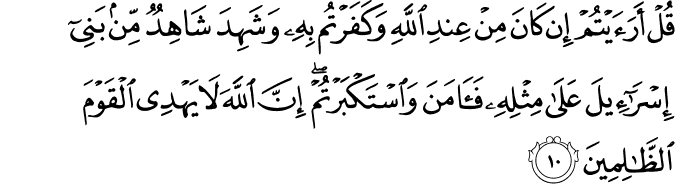 قُلۡ أَرَءَيۡتُمۡ إِن كَانَ مِنۡ عِندِ ٱللَّهِ وَكَفَرۡتُم بِهِۦ وَشَهِدَ شَاهِدٞ مِّنۢ بَنِيٓ
إِسۡرَٰٓءِيلَ عَلَىٰ مِثۡلِهِۦ فَـَٔامَنَ وَٱسۡتَكۡبَرۡتُمۡۚ إِنَّ ٱللَّهَ لَا يَهۡدِي ٱلۡقَوۡمَ
ٱلظَّٰلِمِينَ ١٠